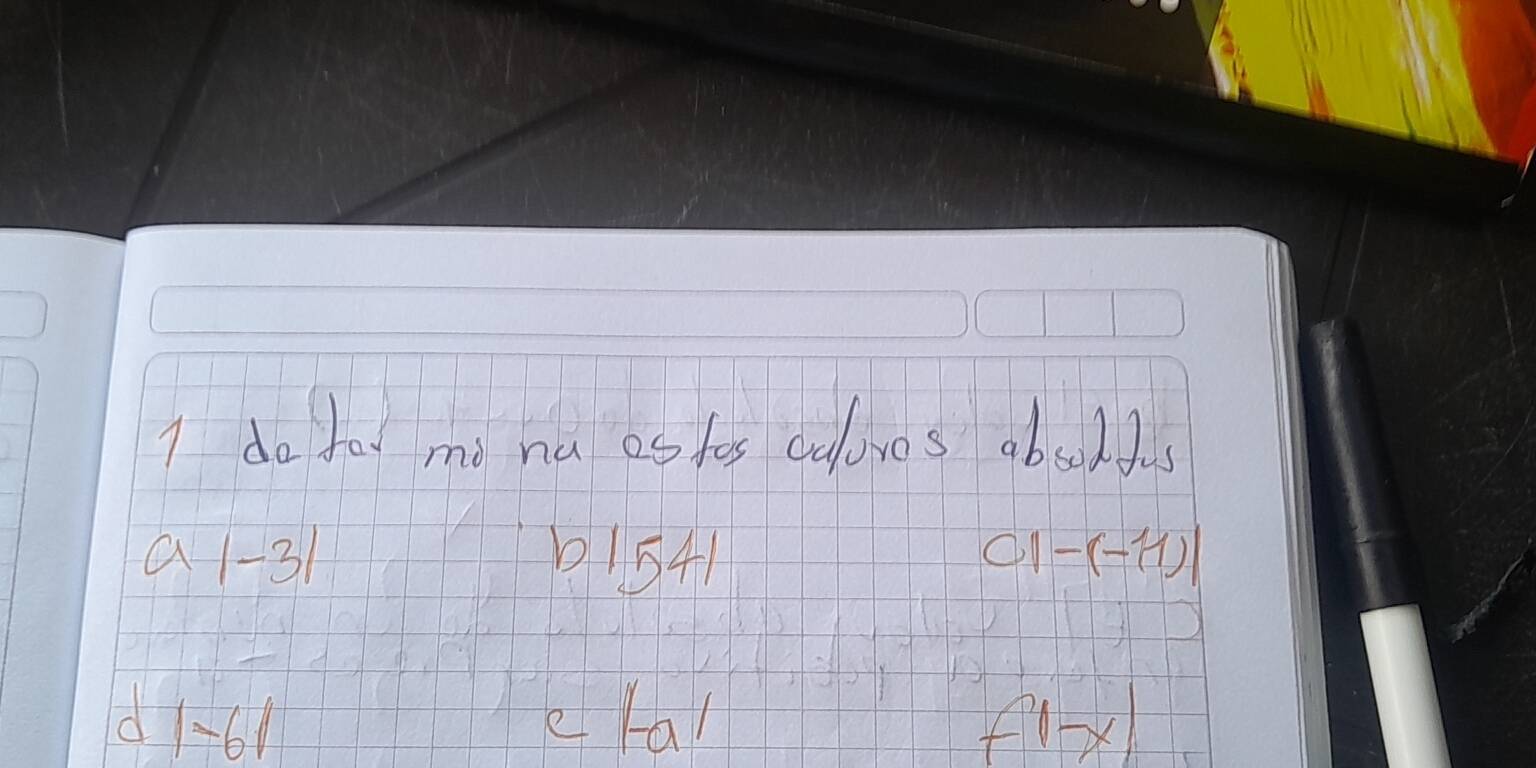 1 de ter mi na estos valores absolutos
a |-3| b |54| c |-(-11)|
d |-6| e |-a| f |-x|